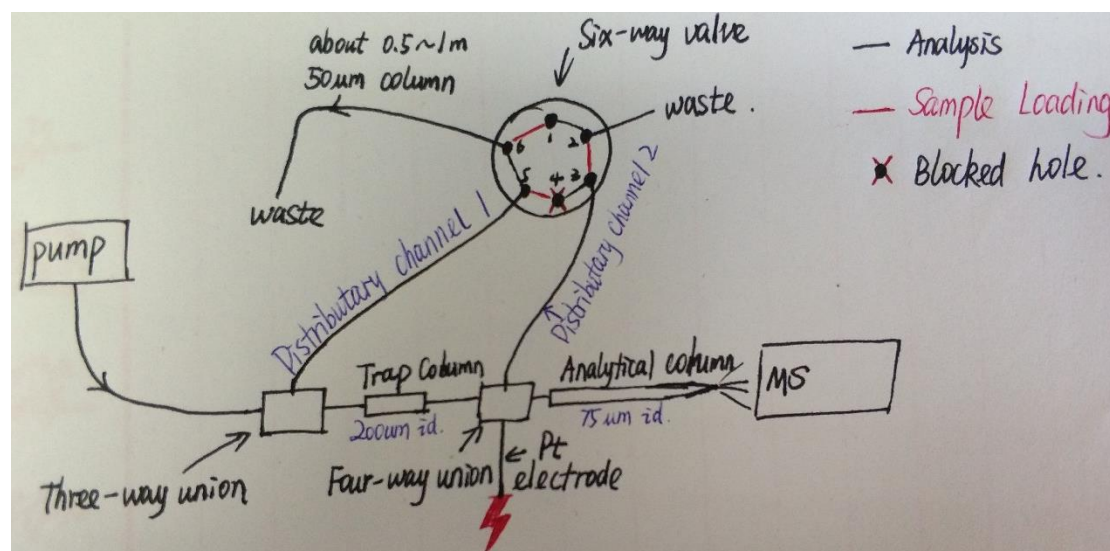 about 0.5~1m
50μm column
Six-way valve
— Analysis
— Sample Loading
Blocked hole.
waste.
1
2
3
4
5
6
waste
pump
Distributary channel 1
Distributary channel 2
Trap Column
200um id.
Analytical column
75um id.
MS
Three-way union
Four-way union
Pt
electrode